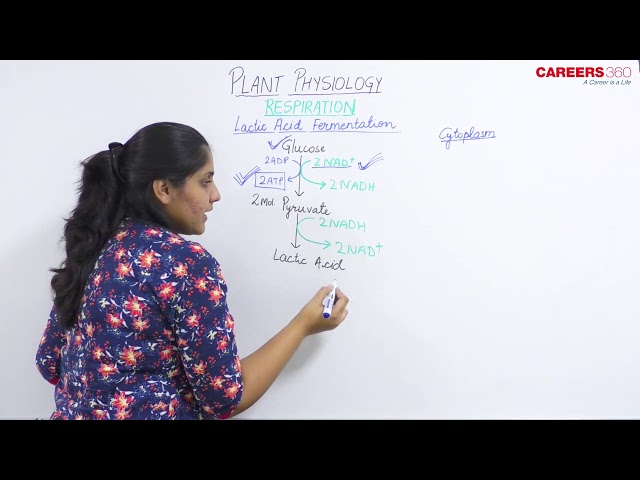 CAREERS360
A Career is a Life
PLANT PHYSIOLOGY
RESPIRATION
Lactic Acid Fermentation
Cytoplasm
Glucose
2ADP 2NAD+
2ATP 2NADH
2 Mol. Pyruvate
2NADH
2NAD+
Lactic Acid